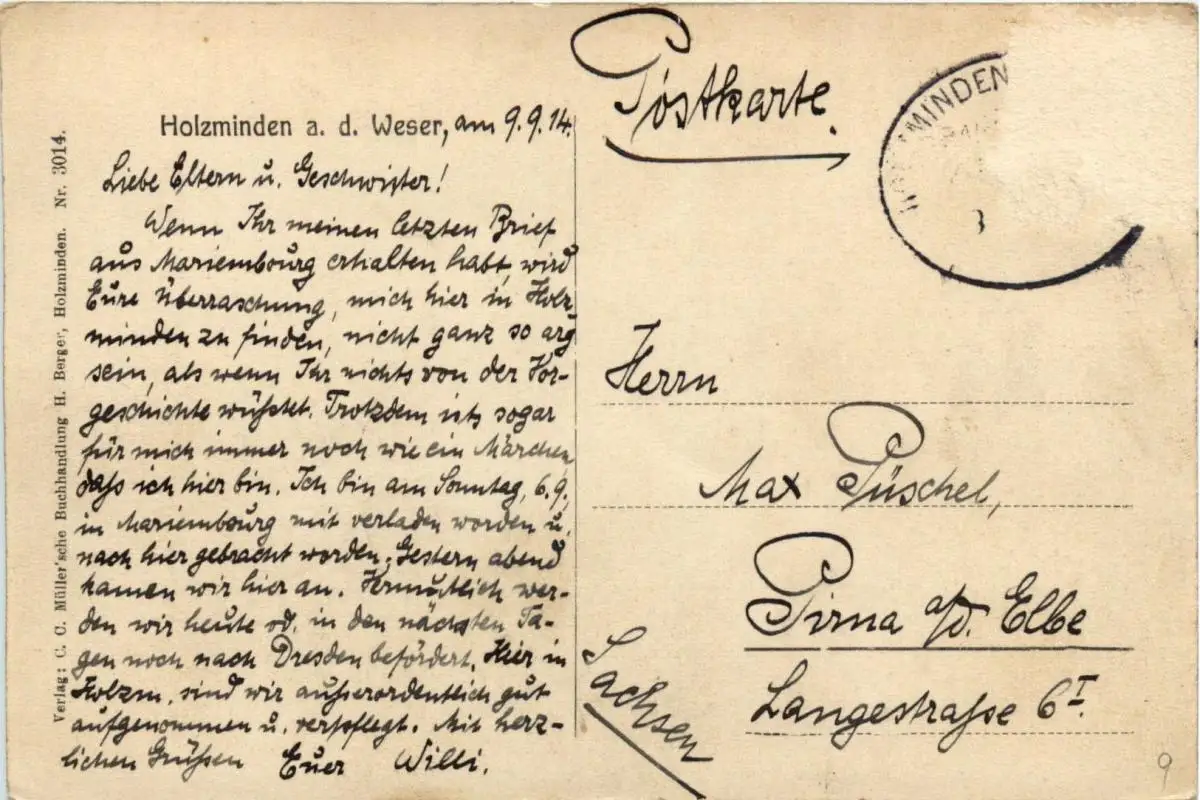 Verlag: C. C. Müller'sche Buchhandlung H. Berger, Holzminden. Nr. 3014.
Holzminden a. d. Weser, am 9.9.14.
Liebe Eltern u. Geschwister!
Wenn Ihr meinen letzten Brief
aus Mariembourg erhalten habt, wird
Eure Überraschung, mich hier in Holz-
minden zu finden, nicht ganz so arg
sein, als wenn Ihr nichts von der Vor-
geschichte wüßtet. Trotzdem ists sogar
für mich immer noch wie ein Märchen,
daß ich hier bin. Ich bin am Sonntag, 6.9.,
in Mariembourg mit verladen worden u.
nach hier gebracht worden. Gestern abend
kamen wir hier an. Vermutlich wer-
den wir heute od. in den nächsten Ta-
gen noch nach Dresden befördert. Hier in
Holzm. sind wir außerordentlich gut
aufgenommen u. verpflegt. Mit herz-
lichen Grüßen Euer Willi.
Postkarte.
HOLZMINDEN
Herrn
Max Püschel,
Pirna a/d. Elbe
Langestraße 6 I.
Sachsen
9